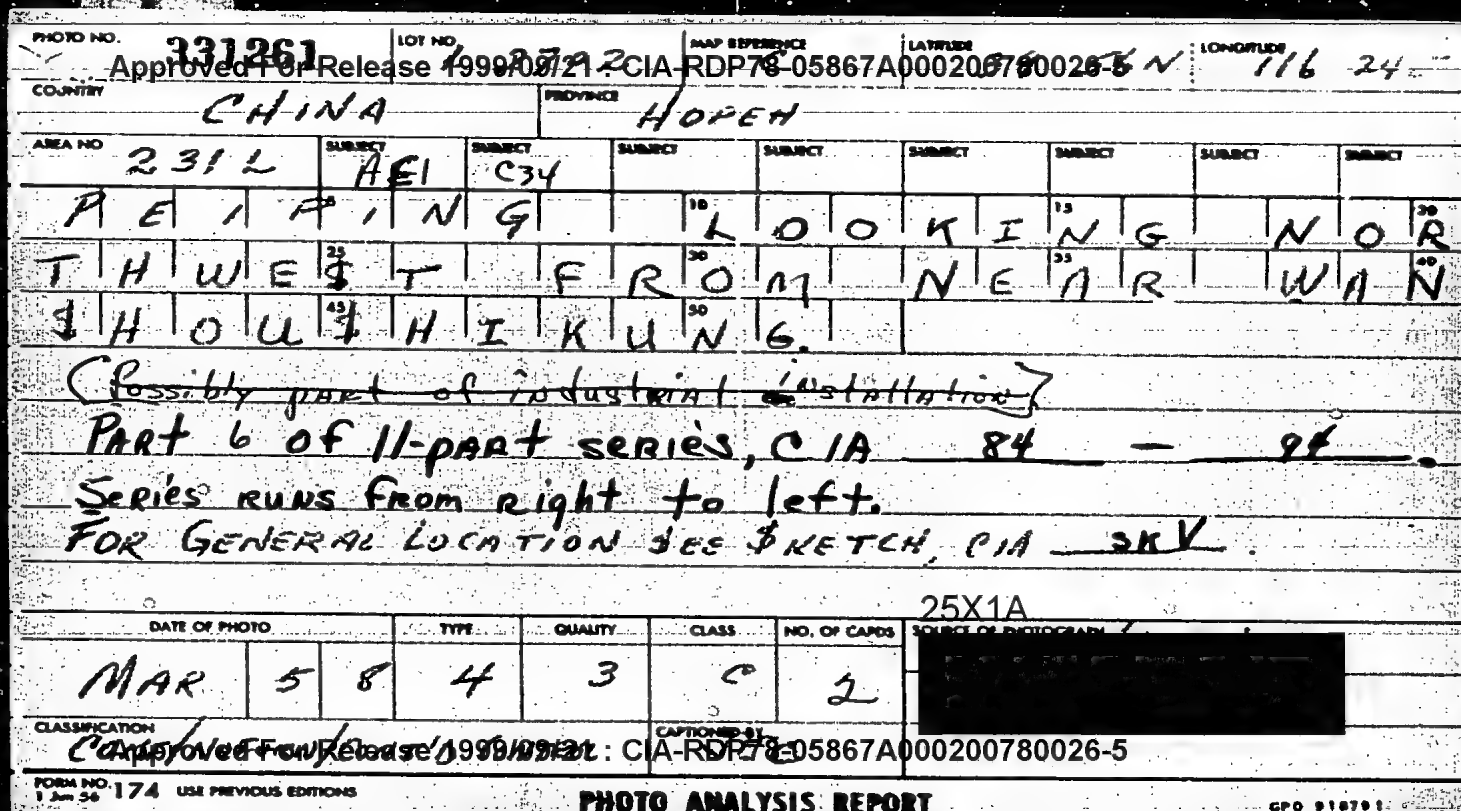 PHOTO NO. 331261 LOT NO. MAP REFERENCE LATITUDE N LONGITUDE 116 24
Approved For Release 1999/09/21 : CIA-RDP78-05867A000200780026-5
COUNTRY CHINA PROVINCE HOPEH
AREA NO 231L SUBJECT AE1 SUBJECT C34 SUBJECT SUBJECT SUBJECT SUBJECT SUBJECT SUBJECT
PEIPING 10 LOOKING 15 NOR 20
THWE 25 ST FR 30 OM NE 35 AR WAN 40
SHOU 45 SHIKU 50 NG.
(Possibly part of industrial installation)
PART 6 OF 11-PART SERIES, CIA 84 - 94.
SERIES RUNS FROM RIGHT to left.
FOR GENERAL LOCATION SEE SKETCH, CIA SKV.
25X1A
DATE OF PHOTO TYPE QUALITY CLASS NO. OF CARDS SOURCE OF PHOTOGRAPH
MAR 58 4 3 C 2
CLASSIFICATION CAPTIONED BY
Approved For Release 1999/09/21 : CIA-RDP78-05867A000200780026-5
FORM NO. 174 USE PREVIOUS EDITIONS PHOTO ANALYSIS REPORT GPO 918791
1 Jan 56